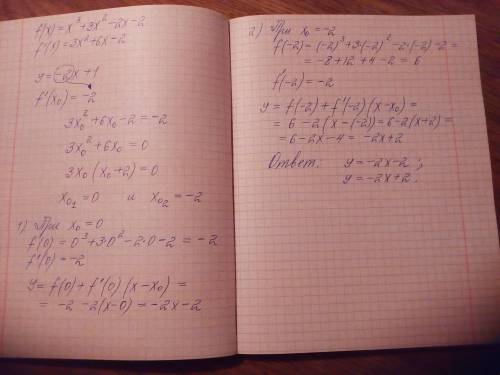 f(x) = x³ + 3x² - 2x - 2
f'(x) = 3x² + 6x - 2
y = -2x + 1
f'(x₀) = -2
3x₀² + 6x₀ - 2 = -2
3x₀² + 6x₀ = 0
3x₀(x₀ + 2) = 0
x₀₁ = 0 и x₀₂ = -2
1) При x₀ = 0
f(0) = 0³ + 3·0² - 2·0 - 2 = -2
f'(0) = -2
y = f(0) + f'(0)(x - x₀) =
= -2 - 2(x - 0) = -2x - 2
2) При x₀ = -2
f(-2) = (-2)³ + 3·(-2)² - 2·(-2) - 2 =
= -8 + 12 + 4 - 2 = 6
f'(-2) = -2
y = f(-2) + f'(-2)(x - x₀) =
= 6 - 2(x - (-2)) = 6 - 2(x + 2) =
= 6 - 2x - 4 = -2x + 2
Ответ: y = -2x - 2;
y = -2x + 2.